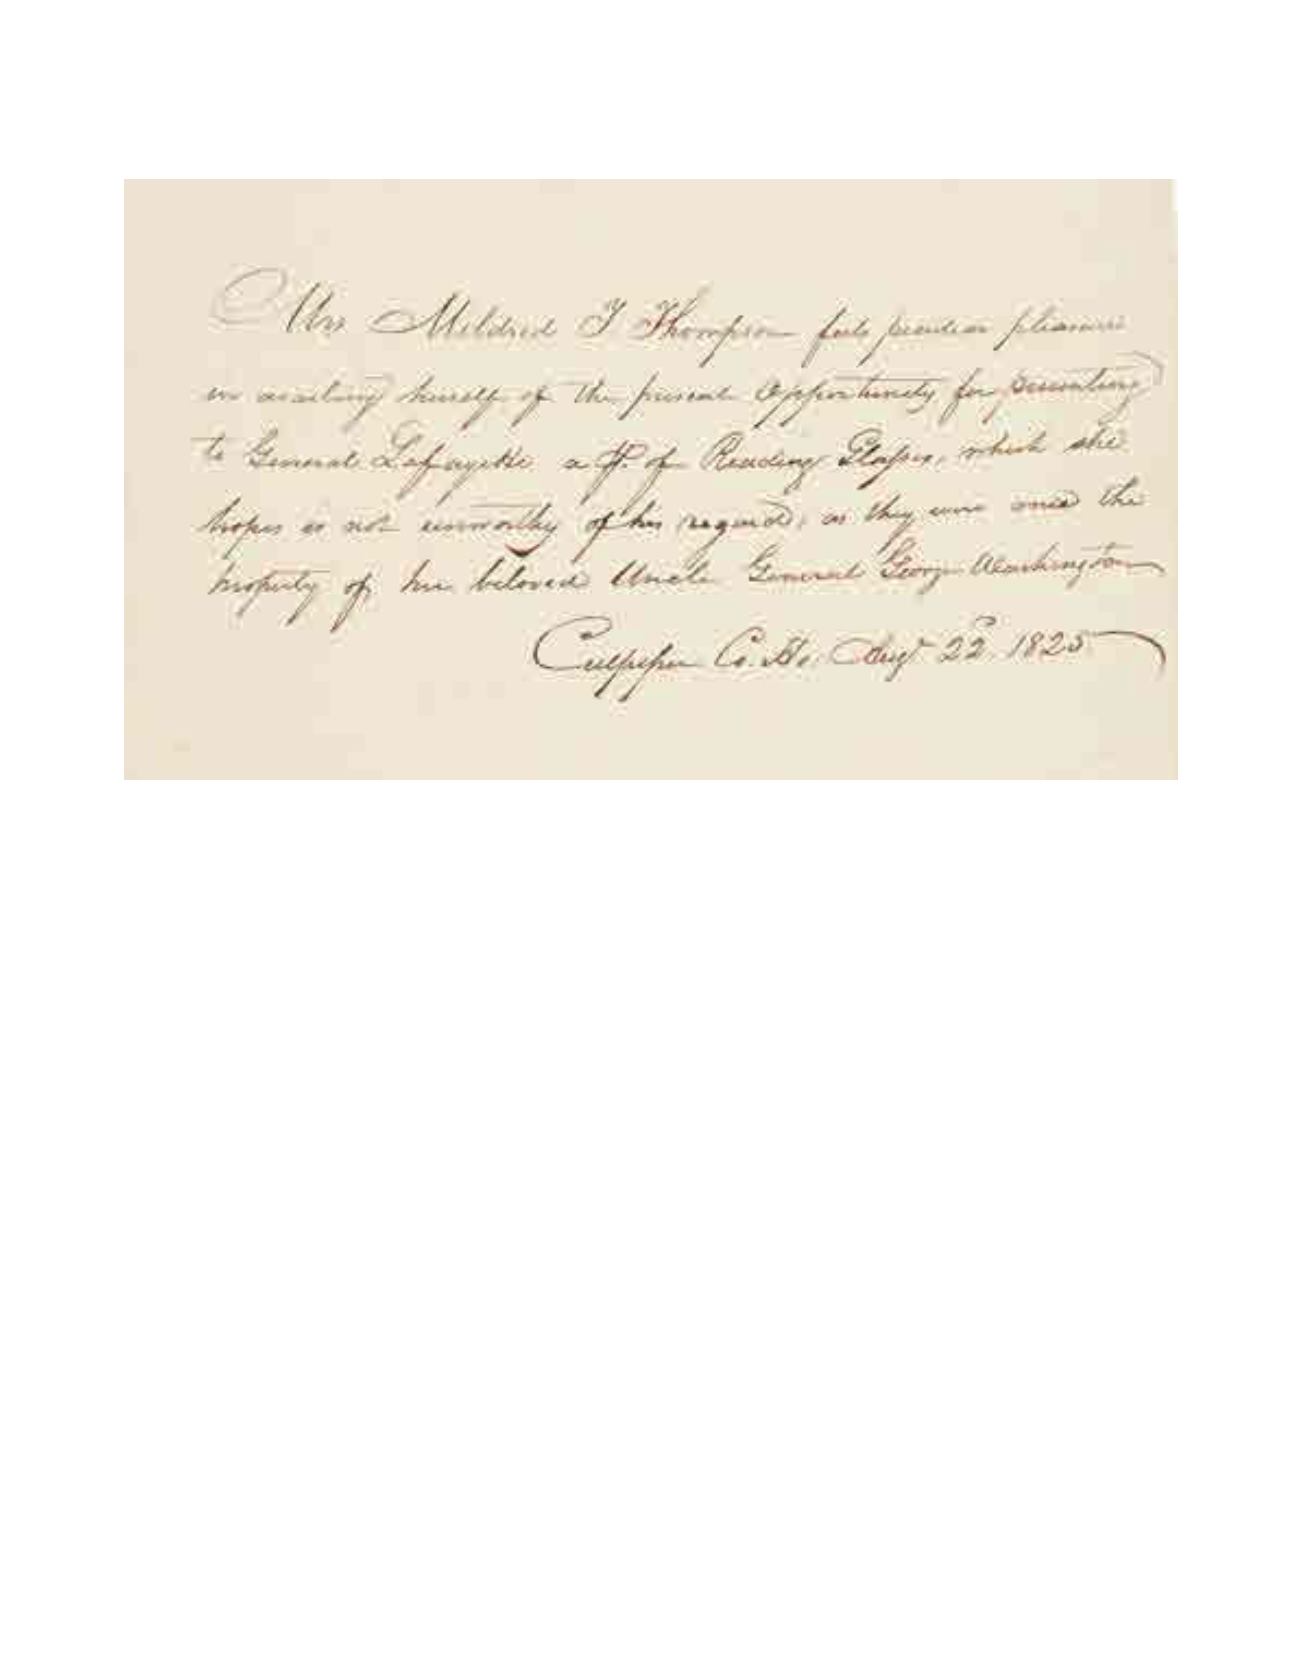 Mrs Mildred T Thompson feels peculiar pleasure
in availing herself of the present Opportunity for presenting
to General Lafayette a pr. of Reading Glasses, which she
hopes is not unworthy of his regard, as they were once the
property of her beloved Uncle General George Washington
Culpeper Co. Ho. Augt 22d. 1825